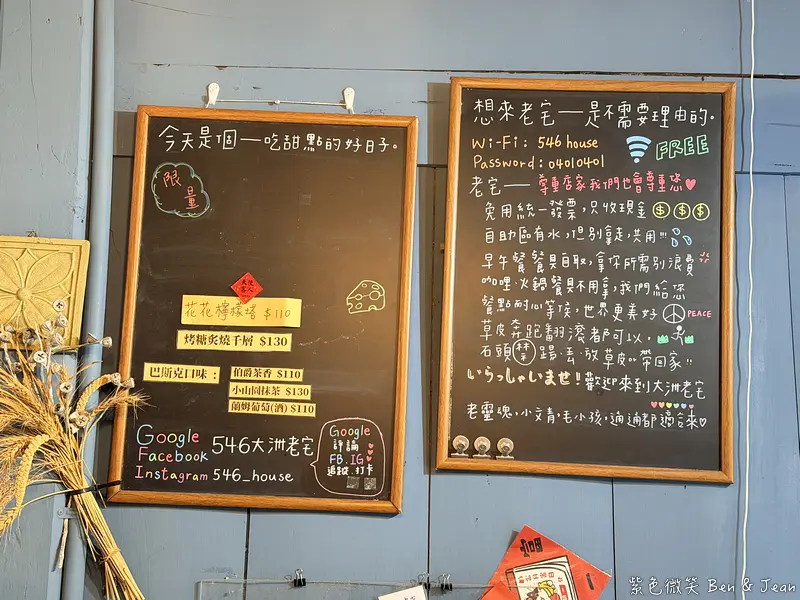 今天是個一吃甜點的好日子。
限
量
花花檸檬塔 $110
烤糖炙燒千層 $130
巴斯克口味：
伯爵茶香 $110
小山園抹茶 $130
蘭姆葡萄(酒) $110
Google
Facebook
546大洲老宅
Instagram 546_house
Google
評論
FB.IG
追蹤.打卡
想來老宅一是不需要理由的。
Wi-Fi: 546 house
Password: 04010401
FREE
老宅一尊重店家我們也會尊重您
免用統一發票，只收現金 $ $ $
自助區有水，但別拿走，共用!!!
早午餐餐具自取，拿你所需別浪費
咖哩.火鍋餐具不用拿，我們給您
餐點耐心等候，世界更美好 PEACE
草皮奔跑翻滾都可以，
石頭禁踢.丟.放草皮..帶回家!!
いらっしゃいませ！歡迎來到大洲老宅
老靈魂，小文青，毛小孩，通通都適合來
紫色微笑 Ben & Jean